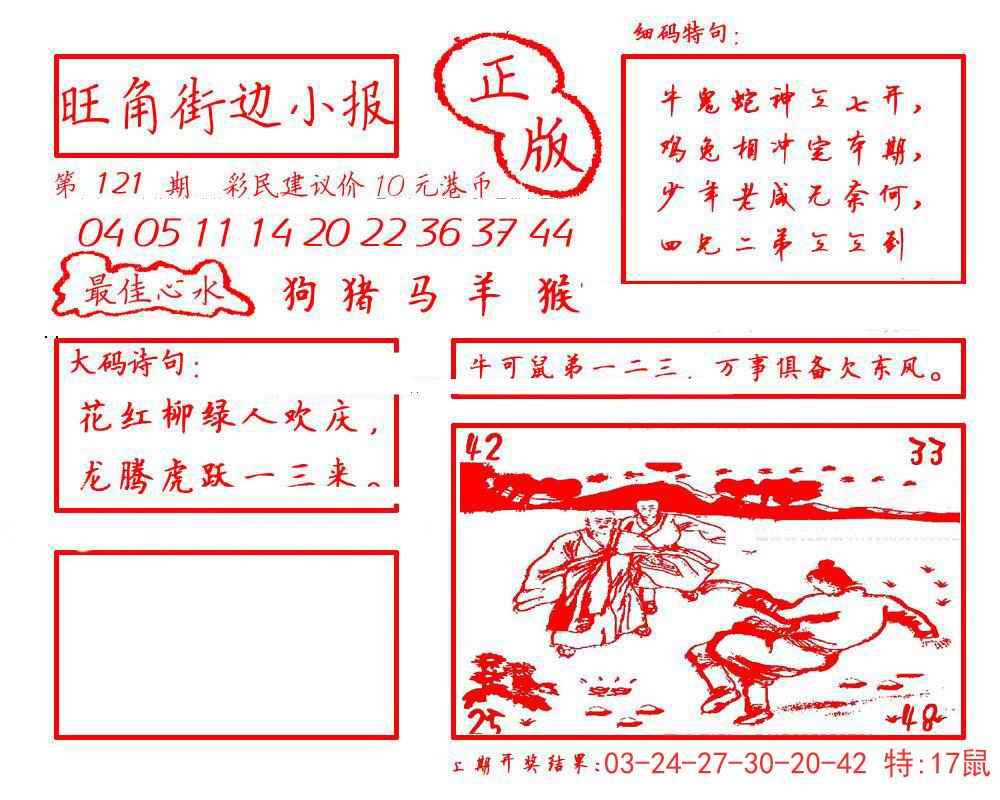 细码特句:
旺角街边小报
正版
牛鬼蛇神叾七开,
鸡兔相冲定本期,
少年老成无奈何,
四兄二弟叾叾到
第 121 期 彩民建议价10元港币
04 05 11 14 20 22 36 37 44
最佳心水 狗 猪 马 羊 猴
大码诗句:
花红柳绿人欢庆,
龙腾虎跃一三来。
牛可鼠弟一二三. 万事俱备欠东风。
42 33
25 48
上期开奖结果:03-24-27-30-20-42 特:17鼠